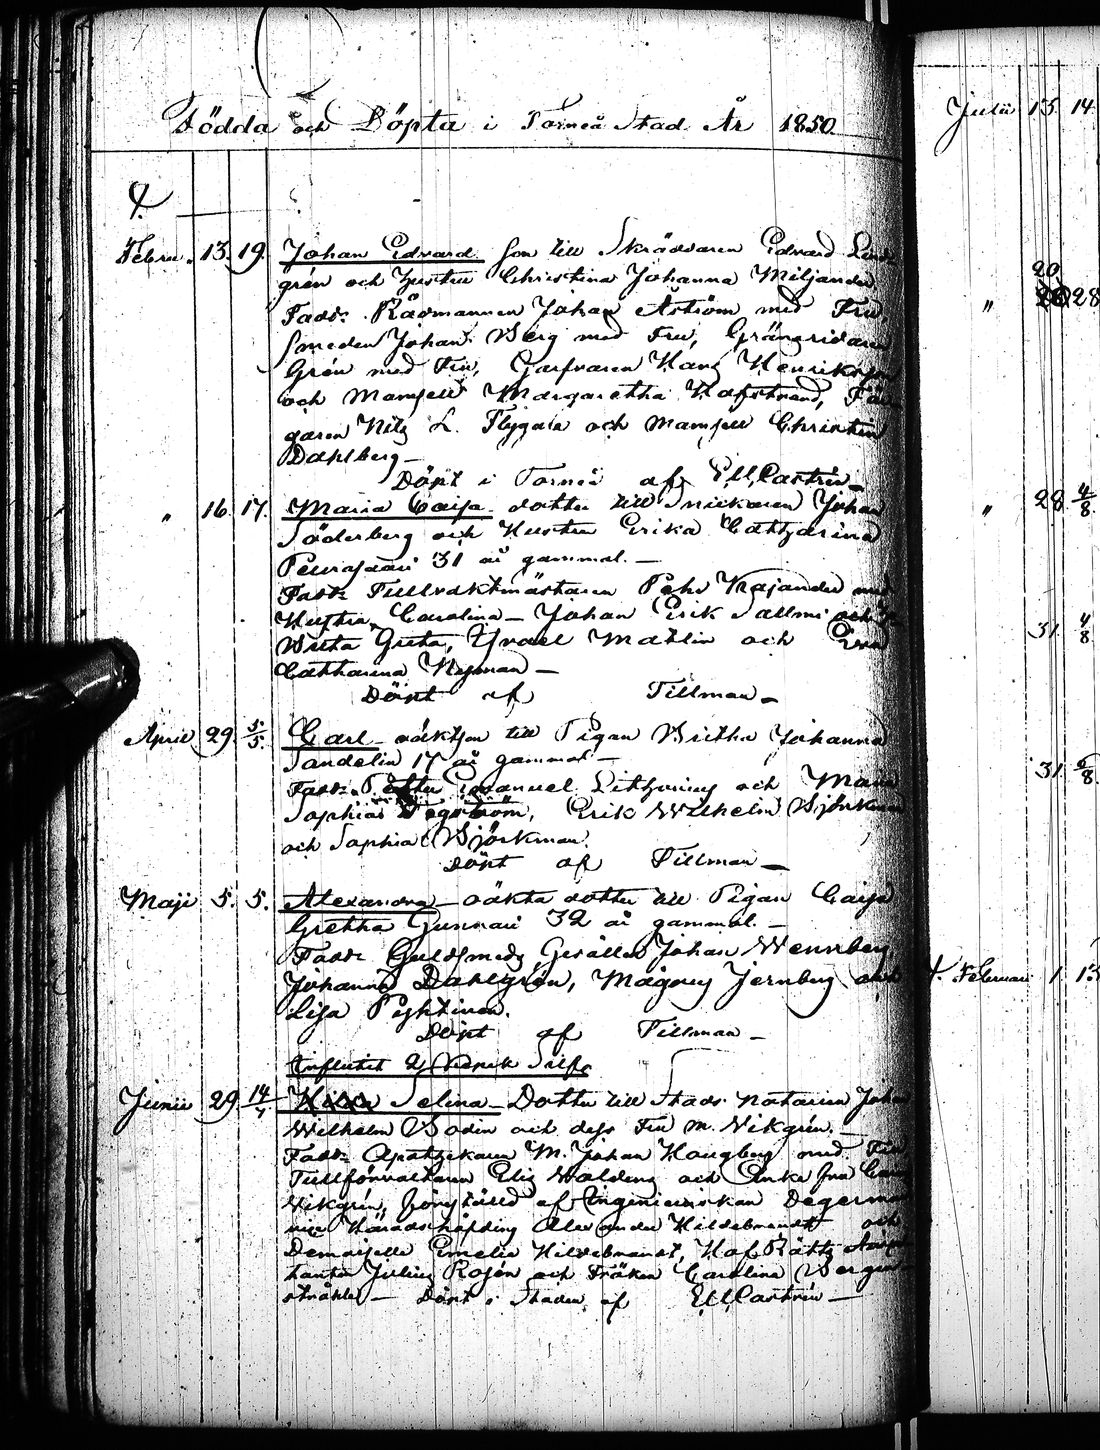 Födda och Döpta i Torneå Stad År 1850
Febru. 13. 19. Johan Edvard son till Skräddaren Edvard Lind
grén och hustru Christina Johanna Miljander
Fadd: Rådmannen Johan Åström med Fru,
Smeden Johan Berg med Fru, Gränsridaren
Grén med Fru, Garfvaren Hans Henrikson
och Mamsell Margaretha Hafstrand,
garen Nils L. Flygare och Mamsell Christin
Dahlberg —
Döpt i Torneå af Castrén —
" 16. 17. Maria Caisa dotter till Snickaren Johan
Söderberg och Hustru Erika Cathzarina
31 år gammal. —
Fadd: Tullvaktmästaren Pehr Krajander med
Hustru Carolina — Johan Erik Sallmi
Brita Greta, Israel Mattlin och Eva
Catharina Nyman —
Döpt af Tillman —
April 29 5/5. Carl oäktson till Pigan Britha Johanna
Sandelin 17 år gammal —
Fadd: Emanuel och Maria
Sophia Erik Wilhelm Björkman
och Sophia Björkman.
Döpt af Tillman —
Maji 5. 5. Alexandra — oäkta dotter till Pigan Caisa
Gretha Gunnari 32 år gammal. —
Fadd: Guldsmeds Gesällen Johan Wennberg
Johanna Dahlgrén, Magnus Jernberg och
Lisa
Döpt af Tillman —
Junii 29 14/7 Selma — Dotter till Stads Notarien Johan
Wilhelm Bodin och dess Fru M. Vikgrén. —
Fadd: Apothekaren M. Johan Haugberg med Fru
Tullförvaltaren Elis Walding och Enke fru
Vikgrén, föreställd af Ingenieurskan Degerman
vice Häradshöfding Alexander Hildebrandt och
Demoiselle Emelie Hildebrandt, Hof Rätts
tanten Julius Rosén och Fröken Carolina Bergen
stråhle — Döpt i Staden af Castrén —
Julii 13 14
" 20 28
" 28 4/8
31 4/8
31 6/8
Februari 1 13